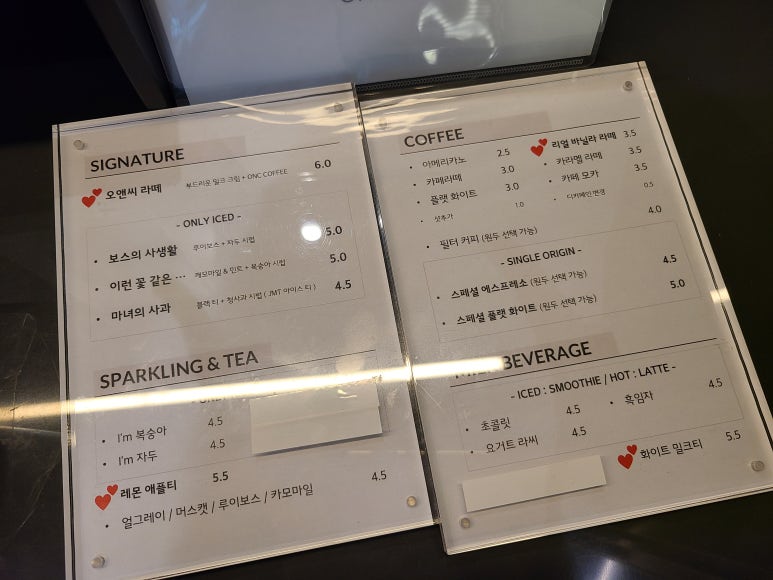 SIGNATURE
오앤씨 라떼 부드러운 밀크 크림 + ONC COFFEE 6.0
- ONLY ICED -
• 보스의 사생활 루이보스 + 자두 시럽 5.0
• 이런 꽃 같은 ··· 캐모마일 & 민트 + 복숭아 시럽 5.0
• 마녀의 사과 블랙 티 + 청사과 시럽 ( JMT 아이스 티 ) 4.5
SPARKLING & TEA
• I'm 복숭아 4.5
• I'm 자두 4.5
레몬 애플티 5.5
• 얼그레이 / 머스캣 / 루이보스 / 카모마일 4.5
COFFEE
• 아메리카노 2.5
• 카페라떼 3.0
• 플랫 화이트 3.0
• 샷추가 1.0
리얼 바닐라 라떼 3.5
• 카라멜 라떼 3.5
• 카페 모카 3.5
• 디카페인 변경 0.5
• 필터 커피 (원두 선택 가능) 4.0
- SINGLE ORIGIN -
• 스페셜 에스프레소 (원두 선택 가능) 4.5
• 스페셜 플랫 화이트 (원두 선택 가능) 5.0
BEVERAGE
- ICED : SMOOTHIE / HOT : LATTE -
• 초콜릿 4.5 • 흑임자 4.5
• 요거트 라씨 4.5
화이트 밀크티 5.5